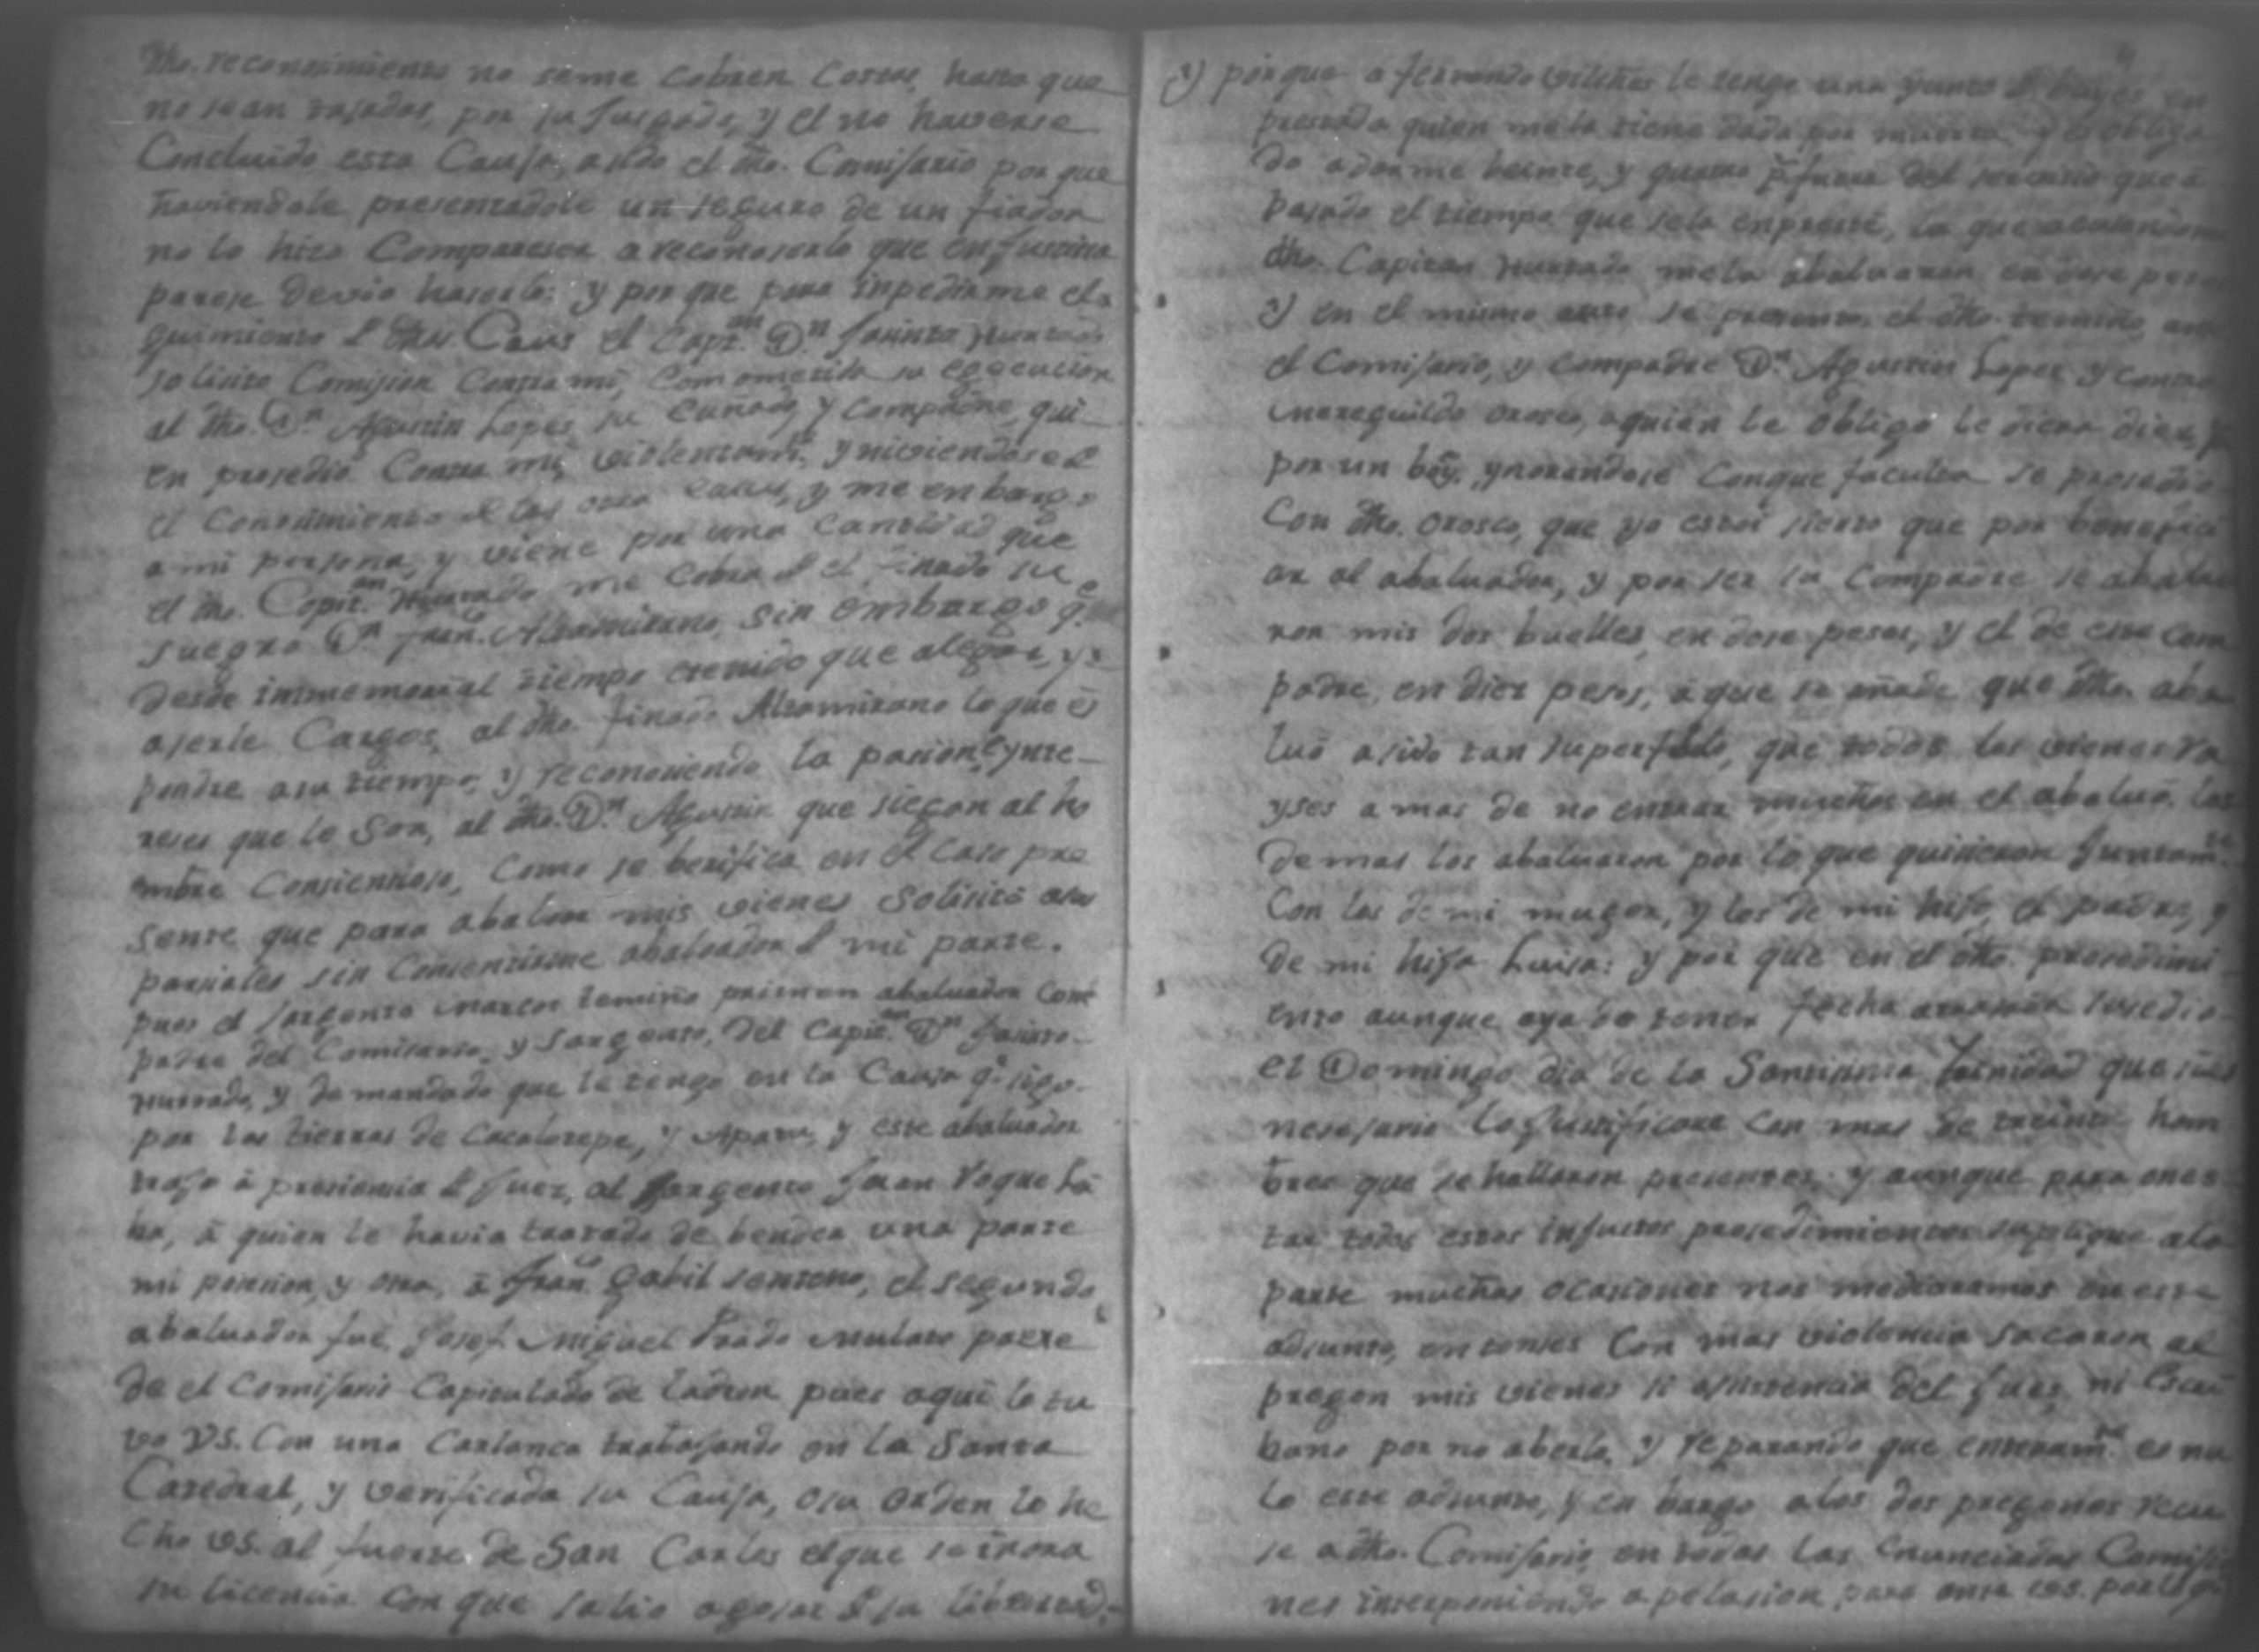 dho. reconosimiento no seme cobren Costas, hasta que
no sean tasadas, por su Jusgado, y el no haverse
Concluido esta Causa, asido el dho. Comisario por que
haviendole presentadole un seguro de un fiador
no lo hizo Compareser a reconoserlo que en justicia
parese devio haserlo: y por que para inpedirme el
guimiento el Capt.an D.n Jasinto Hurtado
solisito Comision Contra mi, su egecucion
al dho. D.n Agustin Lopes su Cuñado, y Compadre, qui-
en prosedio Contra mi, violentam.te
el Conosimiento otra causa, y me enbargo
a mi persona, y viene por una Cantidad que
el dho. Capit.an Hurtado me Cobra el finado su
suegro D.n Fran.co Altamirano, sin embargo q.e
desde immemorial tiempo etenido que alegar, y
aserle Cargos, al dho. finado Altamirano lo que es
pondre asu tiempo, y reconosiendo la pasion, eynte-
reses que le son, al dho. D.n Agustin que siegan al ho
mbre Consiensioso, Como se berifica en el Caso pre
sente que para abaluar mis vienes solisitó asus
parsiales sin Consentirme abaluador mi parte.
pues el Sargento Marcos Temiño primer abaluador Com
padre del Comisario, y Sargento, del Capit.an D.n Jasinto
Hurtado, y demandado que le tengo en la Causa q.e sigo
por las tierras de Cacalotepe, y y este abaluador
trajo á presiensia Juez, al Sargento Juan Roque
á quien le havia tratado de bender una parte
mi y otra, á Fran.co Gabil Senteno, el segundo
abaluador fue, Josef Miguel Prado Mulato
de el Comisario Capitulado de ladron pues aqui lo tu
vo VS. Con una Carlanca trabajando en la Santa
Catedral, y verificada su Causa, osu orden lo he
cho VS. al fuerte de San Carlos elque se inora
su licencia Con que salio agosar su libertad.
Y porque a Fernando le tengo una yunta bueyes en
prestada quien mela tiene dada por muerta y es obliga
do adarme beinte, y quatro p.s fuera del que á
pasado el tiempo que sela enpresté, la que
dho. Capitan Hurtado mela abaluaron en dose pesos
Y en el mismo auto se presento, el dho. Temiño, ante
el Comisario, y Compadre D.n Agustin Lopes y contra
Meregildo Orosco, aquien le obligó le diera dies p.s
por un boy, ynorandose Conque facultad se prosedio
Con dho. Orosco, que yo estoi sierto que por benefici
ar al abaluador, y por ser su Compadre se abalua
ron mis dos buelles, en dose pesos, y el de este com
padre, en dies pesos, á que se añade que dho. aba
luó asido tan superfluo, que todos los vienes
yses a mas de no entrar muchos en el abaluó los
demas los abaluaron por lo que quisieron Juntam.te
Con los de mi muger, y los de mi hijo, el padre, y
de mi hija Luisa: y por que en el dho. prosedimi
ento aunque aya de tener fecha susedio
el Domingo dia de la Santisima Trinidad que sies
nesesario lo Justificare con mas de treinta hom
bres que se hallaron presentes. y aunque para
tar todos estos injustos prosedimientos suplique ala
parte muchas ocasiones nos mediaramos en este
adsunto, entonses Con mas violencia sacaron al
pregon mis vienes si asistencia del Jues ni Escri
bano por no aberlo, y reparando que enteram.te es nu
lo este adsunto, y en bargo alos dos pregones recu
se adho. Comisario, en todas las enunciadas Comisio
nes interponiendo apelasion para ante VS. por lo q.e